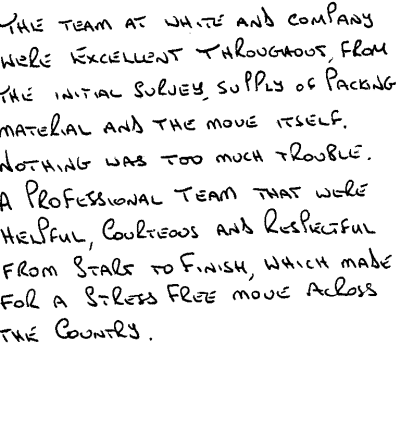 THE TEAM AT WHITE AND COMPANY
WERE EXCELLENT THROUGHOUT, FROM
THE INITIAL SURVEY, SUPPLY OF PACKING
MATERIAL AND THE MOVE ITSELF.
NOTHING WAS TOO MUCH TROUBLE.
A PROFESSIONAL TEAM THAT WERE
HELPFUL, COURTEOUS AND RESPECTFUL
FROM START TO FINISH, WHICH MADE
FOR A STRESS FREE MOVE ACROSS
THE COUNTRY.